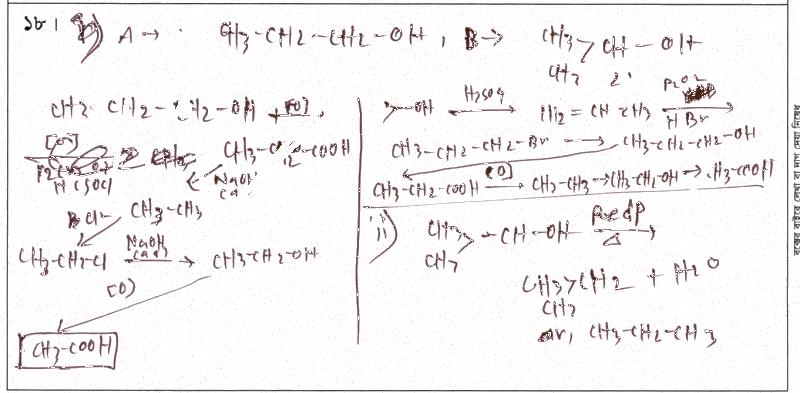 ১৮। i) A → CH3-CH2-CH2-OH, B → CH3 > CH-OH
CH3
CH3-CH2-CH2-OH + [O]
[O]
CH3-CH2-COOH
NaOH
CaO
CH3-CH3
CH3-CH2-Cl NaOH (aq) → CH3-CH2-OH
[O]
CH3-COOH
>-OH H2SO4 → CH2=CH-CH3 H2O2 HBr →
CH3-CH2-CH2-Br → CH3-CH2-CH2-OH
[O]
CH3-CH2-COOH → CH3-CH3 → CH3-CH2-OH → CH3-COOH
ii) CH3 > CH-OH Red P Δ →
CH3
CH3 > CH2 + H2O
CH3
or, CH3-CH2-CH3